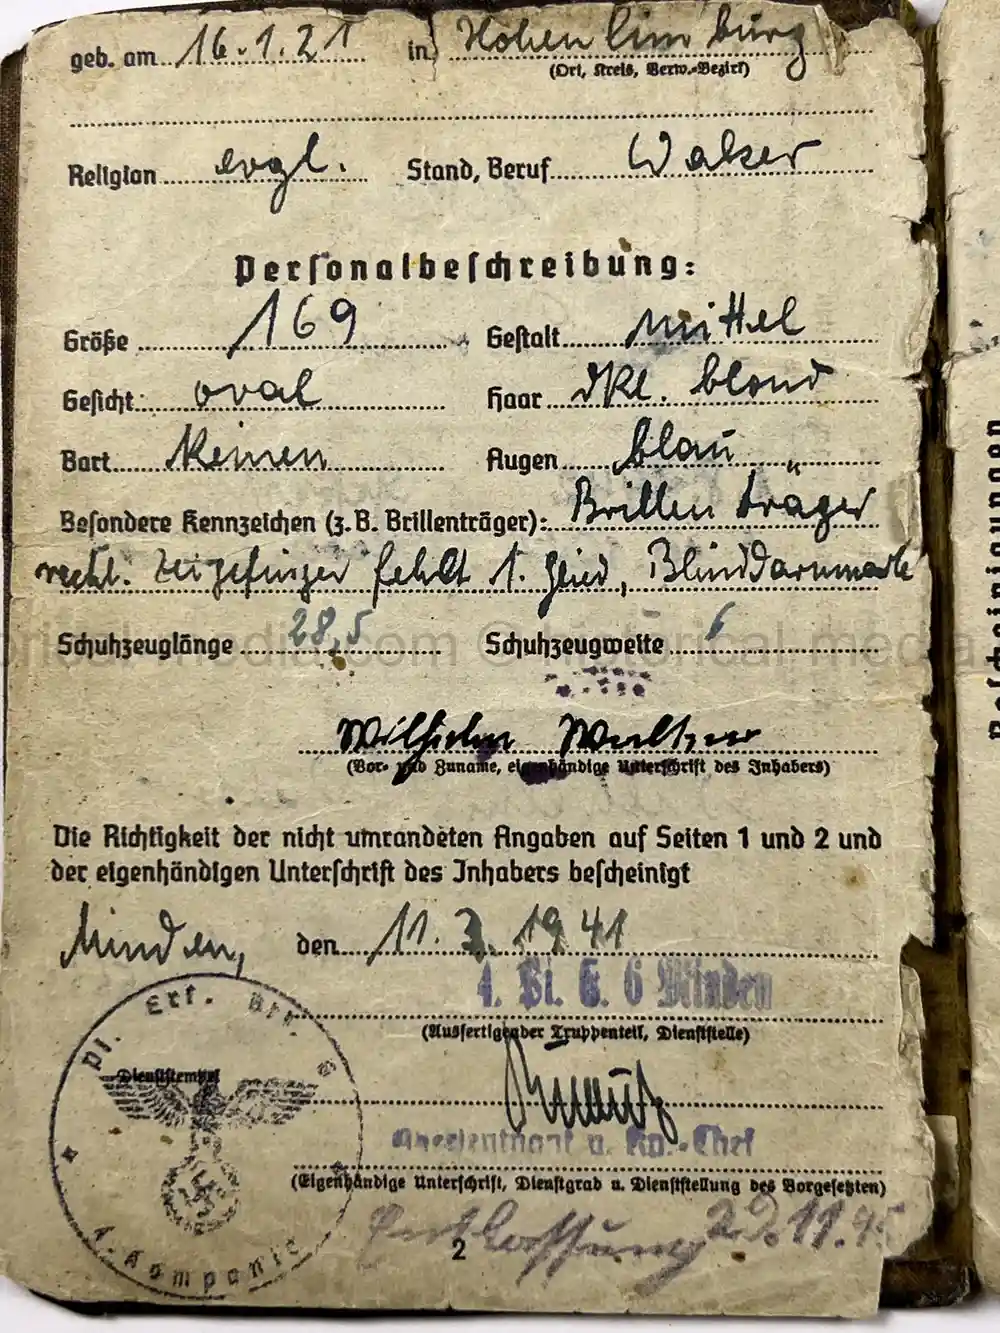 geb. am 16.1.21 in Hohenlimburg
(Ort, Kreis, Verw.-Bezirk)
Religion evgl. Stand, Beruf Walzer
Personalbeschreibung:
Größe 169 Gestalt mittel
Gesicht oval Haar dkl. blond
Bart keinen Augen blau
Besondere Kennzeichen (z. B. Brillenträger): Brillenträger
recht. Zeigefinger fehlt 1. Glied, Blinddarmnarbe
Schuhzeuglänge 28,5 Schuhzeugweite 6
historical-media.com © historical-media
Wilhelm
(Vor- und Zuname, eigenhändige Unterschrift des Inhabers)
Die Richtigkeit der nicht umrandeten Angaben auf Seiten 1 und 2 und
der eigenhändigen Unterschrift des Inhabers bescheinigt
Minden, den 11. 3. 1941
4. Pi. E. 6 Minden
(Ausfertigender Truppenteil, Dienststelle)
Pi. Ers. Btl. 6
Dienststempel
Oberleutnant u. Kp.-Chef
(Eigenhändige Unterschrift, Dienstgrad u. Dienststellung des Vorgesetzten)
Kompanie
Entlassung 22.11.45
2
Bescheinigungen